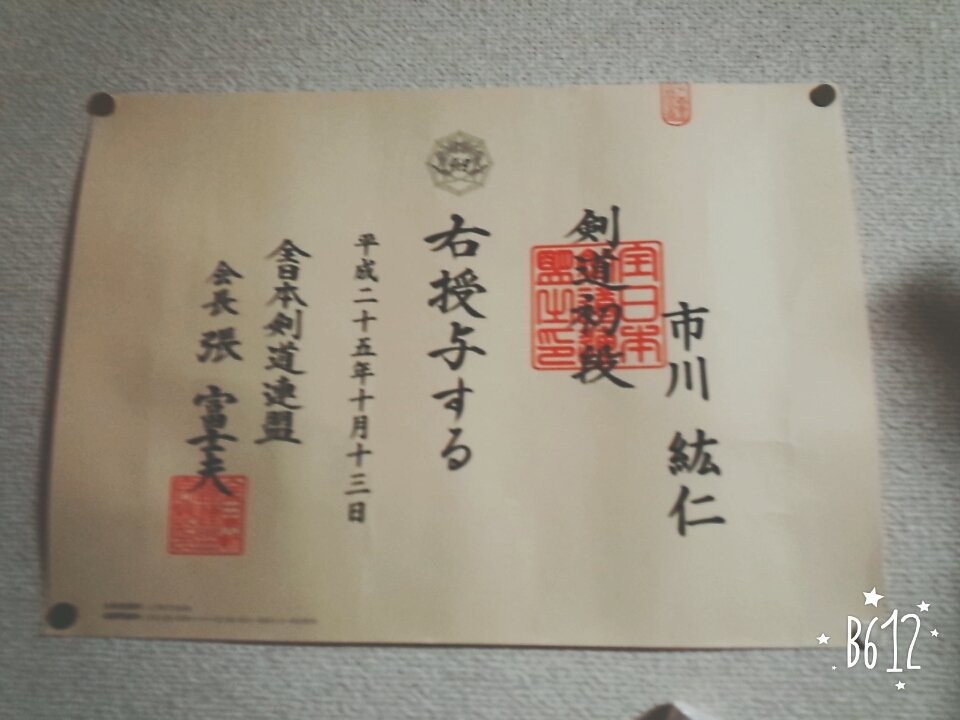 市川 紘仁
剣道初段
全日本
剣道連
盟之印
右授与する
平成二十五年十月十三日
全日本剣道連盟
会長 張 富士夫
B612